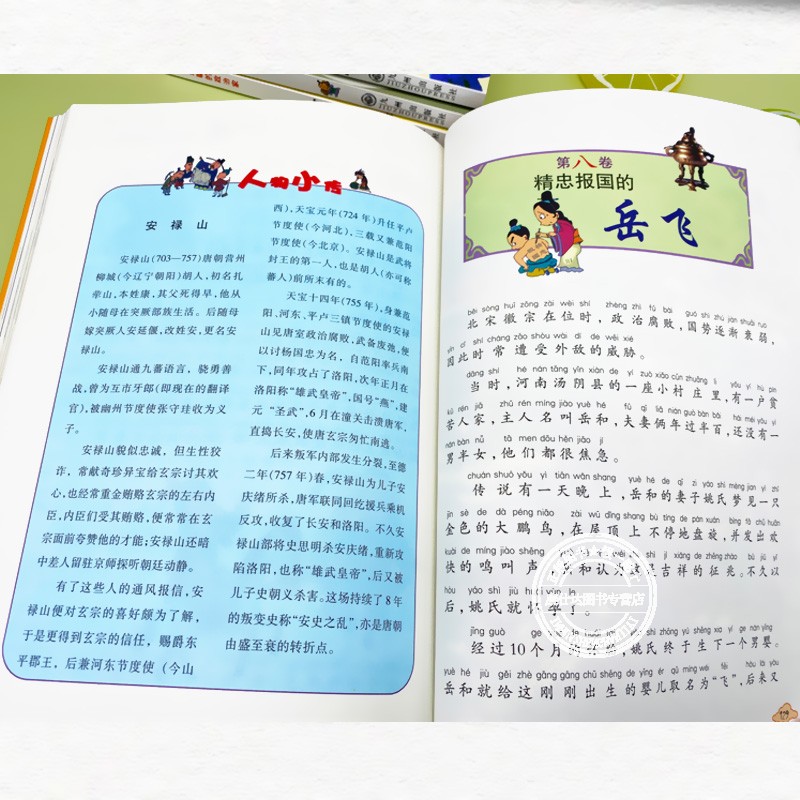 JIUZHOUPRESS
JIUZHOUPRESS
人物小传
安禄山
安禄山(703—757)唐朝营州
柳城(今辽宁朝阳)胡人，初名扎
荦山，本姓康，其父死得早，他从
小随母在突厥部族生活。后随母
嫁突厥人安延偃，改姓安，更名安
禄山。
安禄山通九蕃语言，骁勇善
战，曾为互市牙郎(即现在的翻译
官)，被幽州节度使张守珪收为义
子。
安禄山貌似忠诚，但生性狡
诈，常献奇珍异宝给玄宗讨其欢
心，也经常重金贿赂玄宗的左右内
臣，内臣们受其贿赂，便常常在玄
宗面前夸赞他的才能；安禄山还暗
中差人留驻京师探听朝廷动静。
有了这些人的通风报信，安
禄山便对玄宗的喜好颇为了解，
于是更得到玄宗的信任，赐爵东
平郡王，后兼河东节度使（今山
西)，天宝元年(724年)升任平卢
节度使(今河北)，三载又兼范阳
节度使(今北京)。安禄山是武将
封王的第一人，也是胡人(亦可称
蕃人)前所未有的。
天宝十四年(755年)，身兼范
阳、河东、平卢三镇节度使的安禄
山见唐室政治腐败，武备废弛，便
以讨杨国忠为名，自范阳率兵南
下，同年攻占了洛阳，次年正月在
洛阳称“雄武皇帝”，国号“燕”，建
元“圣武”，6月在潼关击溃唐军，
直捣长安，使唐玄宗匆忙南逃。
后来叛军内部发生分裂，至德
二年(757年)春，安禄山为儿子安
庆绪所杀，唐军联同回纥援兵乘机
反攻，收复了长安和洛阳。不久安
禄山部将史思明杀安庆绪，重新攻
陷洛阳，也称“雄武皇帝”，后又被
儿子史朝义杀害。这场持续了8年
的叛变史称“安史之乱”，亦是唐朝
由盛至衰的转折点。
第八卷
精忠报国的
岳飞
běi sòng huī zōng zài wèi shí zhèng zhì fǔ bài guó shì zhú jiàn shuāi ruò
北宋徽宗在位时，政治腐败，国势逐渐衰弱，
yīn cǐ shí cháng zāo shòu wài dí de wēi xié
因此时常遭受外敌的威胁。
dāng shí hé nán tāng yīn xiàn de yí zuò xiǎo cūn zhuāng lǐ yǒu yí hù pín
当时，河南汤阴县的一座小村庄里，有一户贫
kǔ rén jiā zhǔ rén míng jiào yuè hé fū qī liǎng nián guò bàn bǎi hái méi yǒu yì
苦人家，主人名叫岳和，夫妻俩年过半百，还没有一
nán bàn nǚ tā men dōu hěn jiāo jí
男半女，他们都很焦急。
chuán shuō yǒu yì tiān wǎn shang yuè hé de qī zi yáo shì mèng jiàn yì zhī
传说有一天晚上，岳和的妻子姚氏梦见一只
jīn sè de dà péng niǎo zài wū dǐng shang bù tíng de pán xuán bìng fā chū huān
金色的大鹏鸟，在屋顶上不停地盘旋，并发出欢
kuài de míng jiào shēng
快的鸣叫声。岳和认为这是吉祥的征兆。不久以
hòu yáo shì jiù huái yùn
后，姚氏就怀孕了。
jīng guò
经过10个月
姚氏终于生下一个男婴。
yuè hé jiù gěi zhè gāng gāng chū shēng de yīng ér qǔ míng wéi fēi hòu lái yòu
岳和就给这刚刚出生的婴儿取名为“飞”，后来又
图书专营店